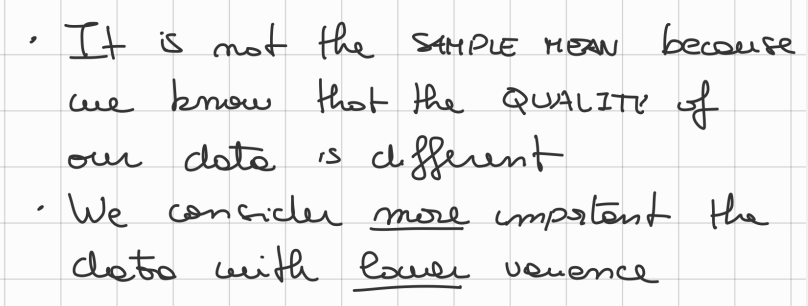 · It is not the SAMPLE MEAN because
we know that the QUALITY of
our data is different
· We consider more important the
data with lower variance